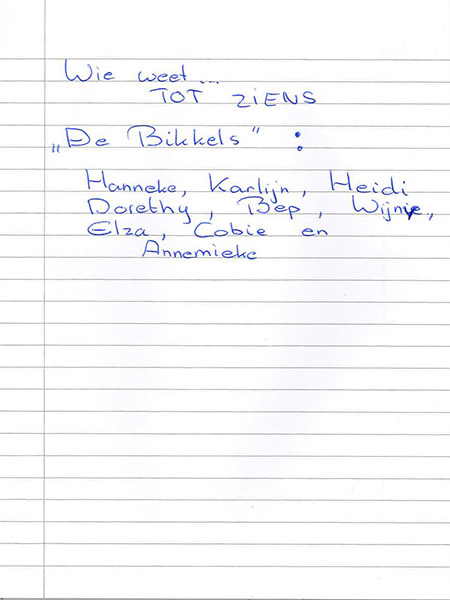 Wie weet...
TOT ZIENS
„De Bikkels" :
Hanneke, Karlijn, Heidi
Dorethy, Bep, Wijnie,
Elza, Cobie en
Annemieke